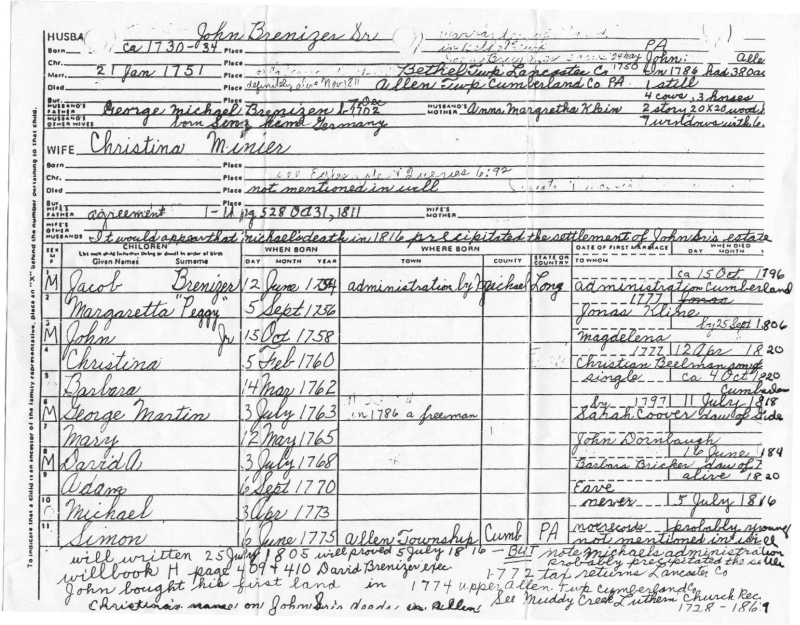 HUSBA John Brenizer Sr
Born ca 1730-34 Place PA
Chr. Place 1750 John: Alle
Marr. 21 Jan 1751 Place Bethel Twp Lancaster Co In 1786 had 380ac
Died Place definitely alive Nov 1811 Allen Twp Cumberland Co PA. 1 still
Bur. Place 4 cows, 3 horses
HUSBAND'S FATHER George Michael Brenizen HUSBAND'S MOTHER Anna Margretha Klein 2 story 20X20 wood
HUSBAND'S OTHER WIVES born Germany 7 windows with 6
WIFE Christina Minier
Born Place
Chr. Place Queries 6:92
Died Place not mentioned in will
Bur. Place
WIFE'S FATHER agreement 1-U pg 528 Oct 31, 1811 WIFE'S MOTHER
WIFE'S OTHER HUSBANDS It would appear that Michael's death in 1816 precipitated the settlement of John Sr's estate
SEX M F CHILDREN List each child (whether living or dead) in order of birth Given Names Surname WHEN BORN DAY MONTH YEAR WHERE BORN TOWN COUNTY STATE OR COUNTRY DATE OF FIRST MARRIAGE TO WHOM WHEN DIED DAY MONTH Y
1 M Jacob Brenizer 12 June 1754 administration by Michael Long ca 15 Oct 1796
administration Cumberland
2 Margaretta "Peggy" 5 Sept 1756 1777 Jonas
Jonas Kline
3 M John Jr 15 Oct 1758 by 25 Sept 1806
Magdelena
4 Christina 5 Feb 1760 1777 12 Apr 1820
Christian Beelman son of
5 Barbara 14 Mar 1762 single ca 4 Oct 1820
6 M George Martin 3 July 1763 in 1786 a freeman by 1797 11 July 1818
Sarah Coover daw of Gide
7 Mary 12 May 1765
John Dornbaugh
8 M David A 3 July 1768 16 June 184
Barbara Bricker daw of
9 Adam 6 Sept 1770 alive 1820
Eave
10 Michael 3 Apr 1773 never 5 July 1816
11 Simon 6 June 1775 Allen Township Cumb PA no records probably young
not mentioned in will
To indicate that a child is an ancestor of the family representative, place an "X" behind the number pertaining to that child.
will written 25 July 1805 will proved 5 July 1816 - BUT note Michaels administration
will book H page 409 + 410 David Brenizer exec. probably precipitated the settle
1772 tax returns Lancaster Co
John bought his first land in 1774 upper Allen Twp Cumberland Co.
Christina's name on John Sr's deeds in Allen See Muddy Creek Luthern Church Rec.
1728-1869